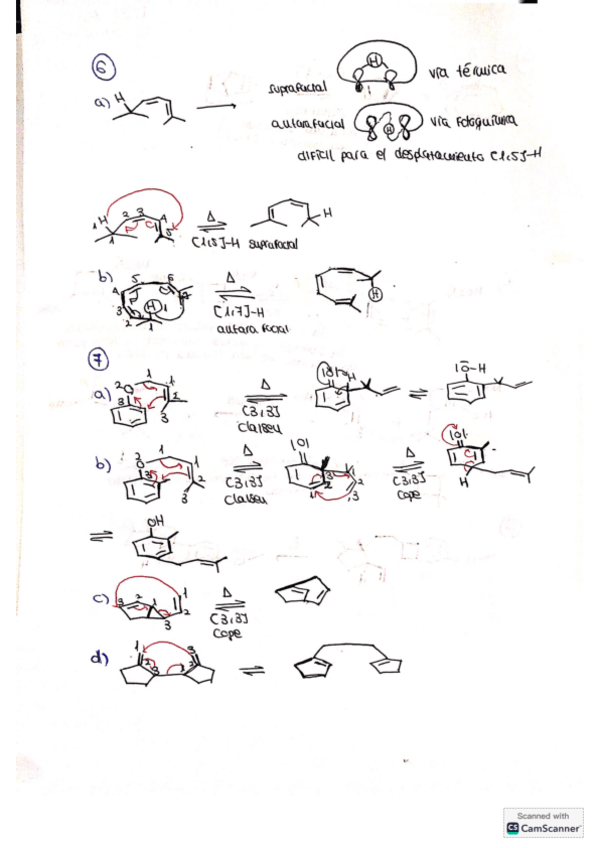 6
a) H
suprafacial H vía térmica
autarafacial H vía Fotoquímica
difícil para el desplatamiento [1,5]-H
1 H 2 3 4 5 1 Δ H
[1,5]-H suprafacial
b) 5 6 7 4 3 2 1 H 1 Δ H
[1,7]-H
autara facial
7
a) 2 O 1 1 2 3 3 Δ |O| H IO-H
[3,3]
claisen
b) 3 O 1 1 2 3 3 Δ IOI 3 1 2 1 2 3 Δ IOI H
[3,3] [3,3]
claisen cope
OH
c) 3 2 1 1 2 3 Δ
[3,3]
cope
d) 1 2 3 3 2 1
Scanned with
CS CamScanner